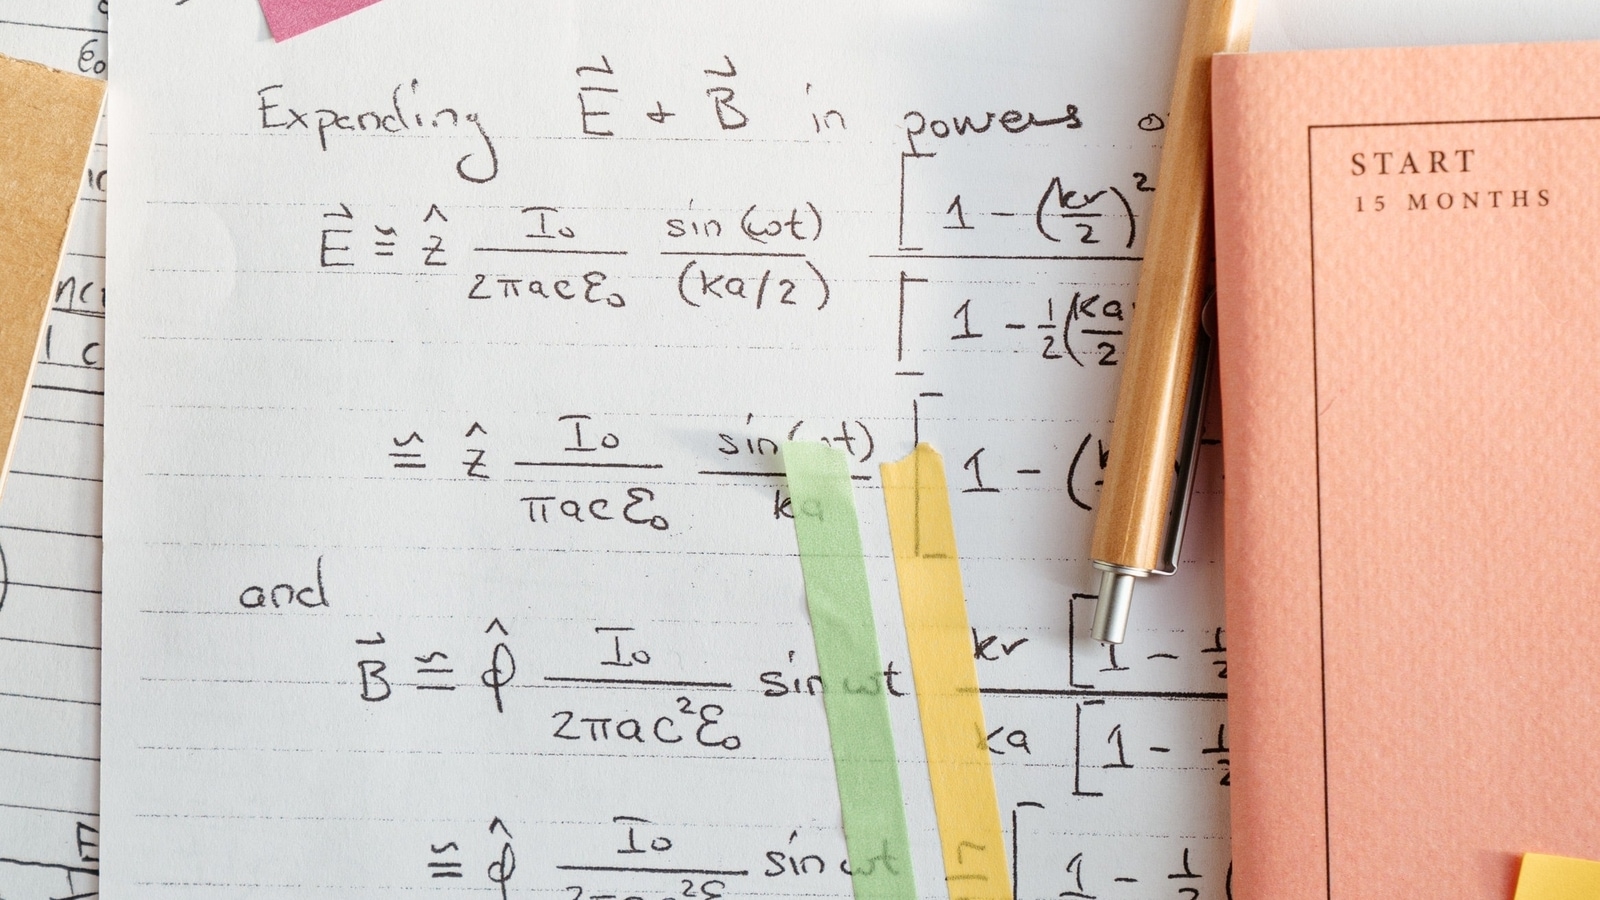 Expanding E⃗ + B⃗ in powers
E⃗ ≅ ẑ I₀/2πacε₀ sin(ωt)/(ka/2) [1 - (kr/2)²
[1 - ½(ka/2
≅ ẑ I₀/πacε₀ sin(ωt)/ka [1 - (
and
B⃗ ≅ φ̂ I₀/2πac²ε₀ sin ωt kr [1 - ½
ka [1 - ½
≅ φ̂ I₀ sin ωt [1 - ½
ε₀
START
15 MONTHS